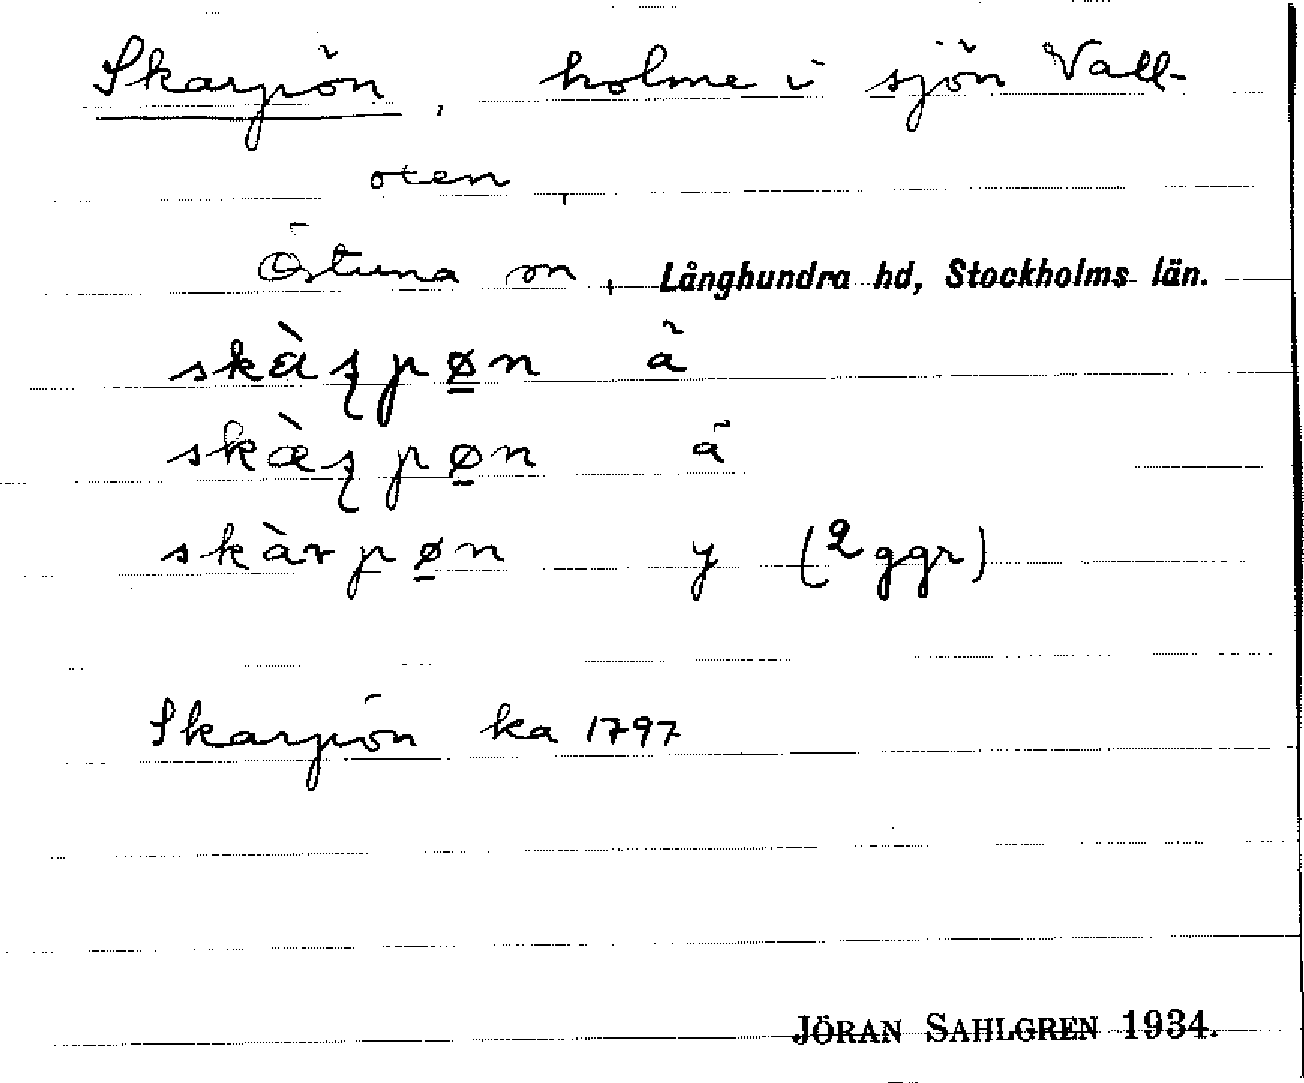 Skarpön, holme i sjön Vall-
oxen,
Östuna sn, Långhundra hd, Stockholms län.
skàʂpø̱n ä
skæ̀ʂpø̱n ä
skàrpø̱n y (2 ggr)
Skarpön ka 1797
JÖRAN SAHLGREN 1934.